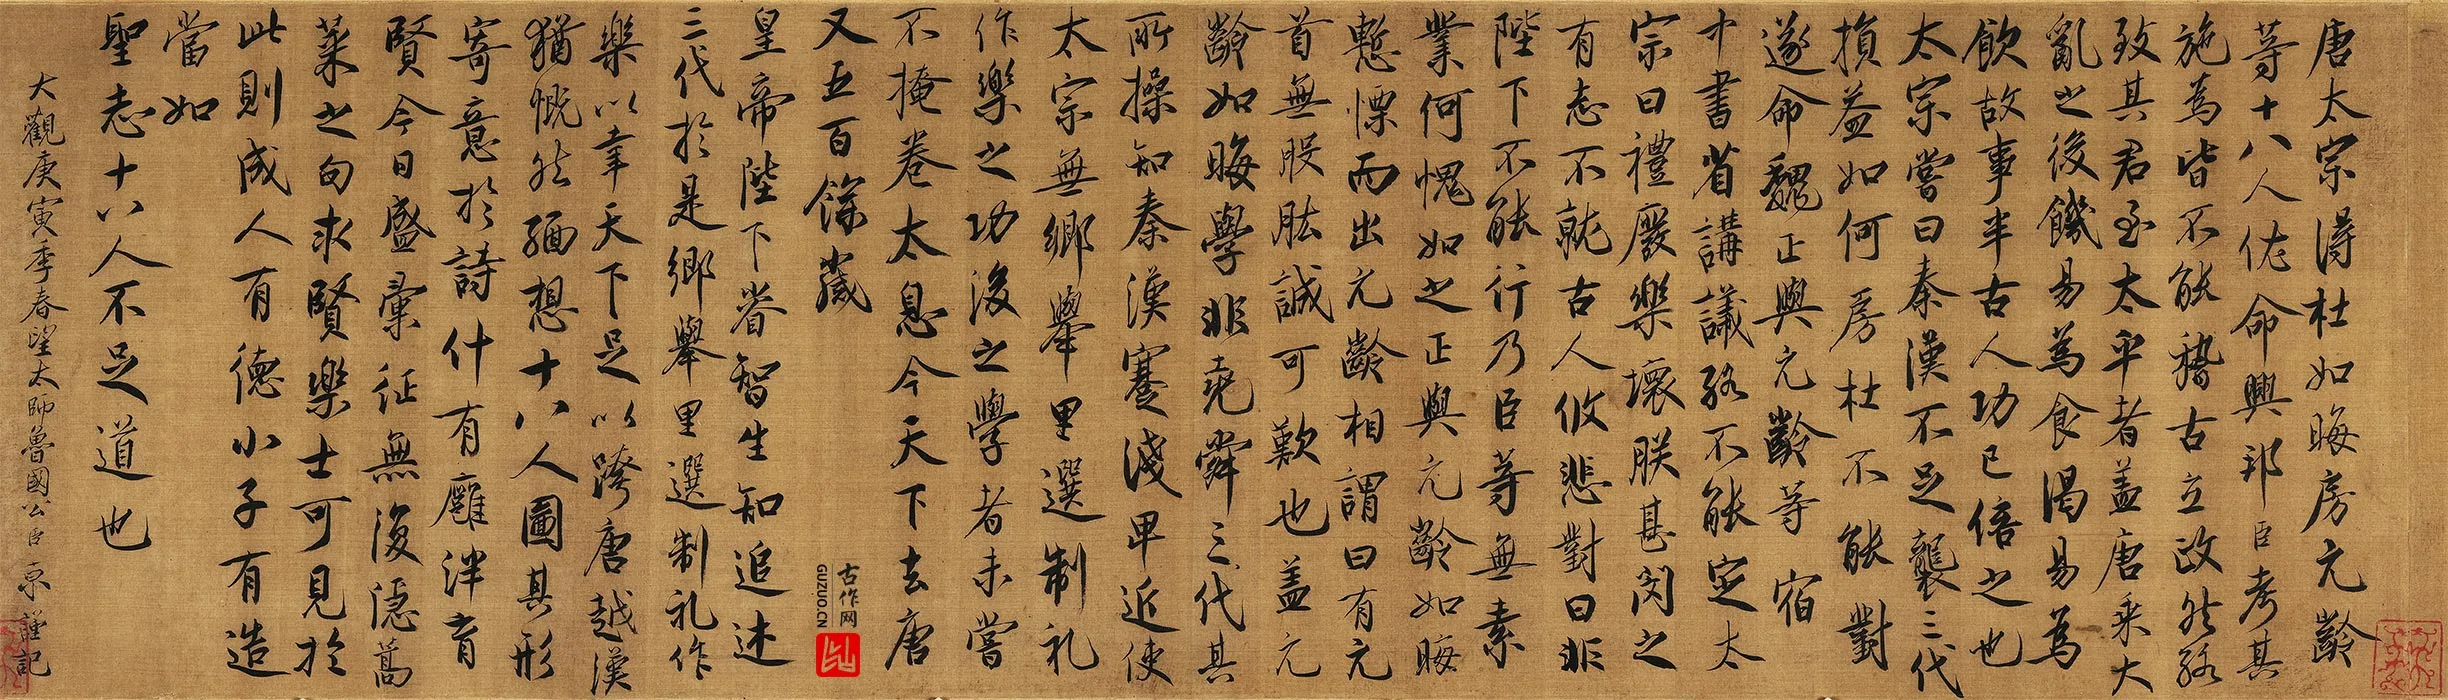 唐太宗得杜如晦房元齡
等十八人佐命興邦臣考其
施為皆不能稽古立政然終
致其君至太平者盖唐乘大
亂之後饑易為食渴易為
飲故事半古人功已倍之也
太宗嘗曰秦漢不足襲三代
損益如何房杜不能對
遂命魏正與元齡等宿
中書省講議終不能定太
宗曰禮廢樂壞朕甚閔之
有志不就古人攸悲對曰非
陛下不能行乃臣等無素
業何愧如之正與元齡如晦
慙慄而出元齡相謂曰有元
首無股肱誠可歎也盖元
齡如晦學非堯舜三代其
所操知秦漢蹇淺卑近使
太宗無鄉舉里選制礼
作樂之功後之學者未嘗
不掩卷太息今天下去唐
又五百餘歲
皇帝陛下睿智生知追述
三代於是鄉舉里選制礼作
樂以幸天下足以跨唐越漢
猶慨然緬想十八人圖其形
寄意於詩什有廱泮育
賢今日盛彙征無復隱蒿
萊之句求賢樂士可見於
此則成人有德小子有造
當如
聖志十八人不足道也
大觀庚寅季春望太師魯國公臣京謹記
古作网
GUZUO.CN